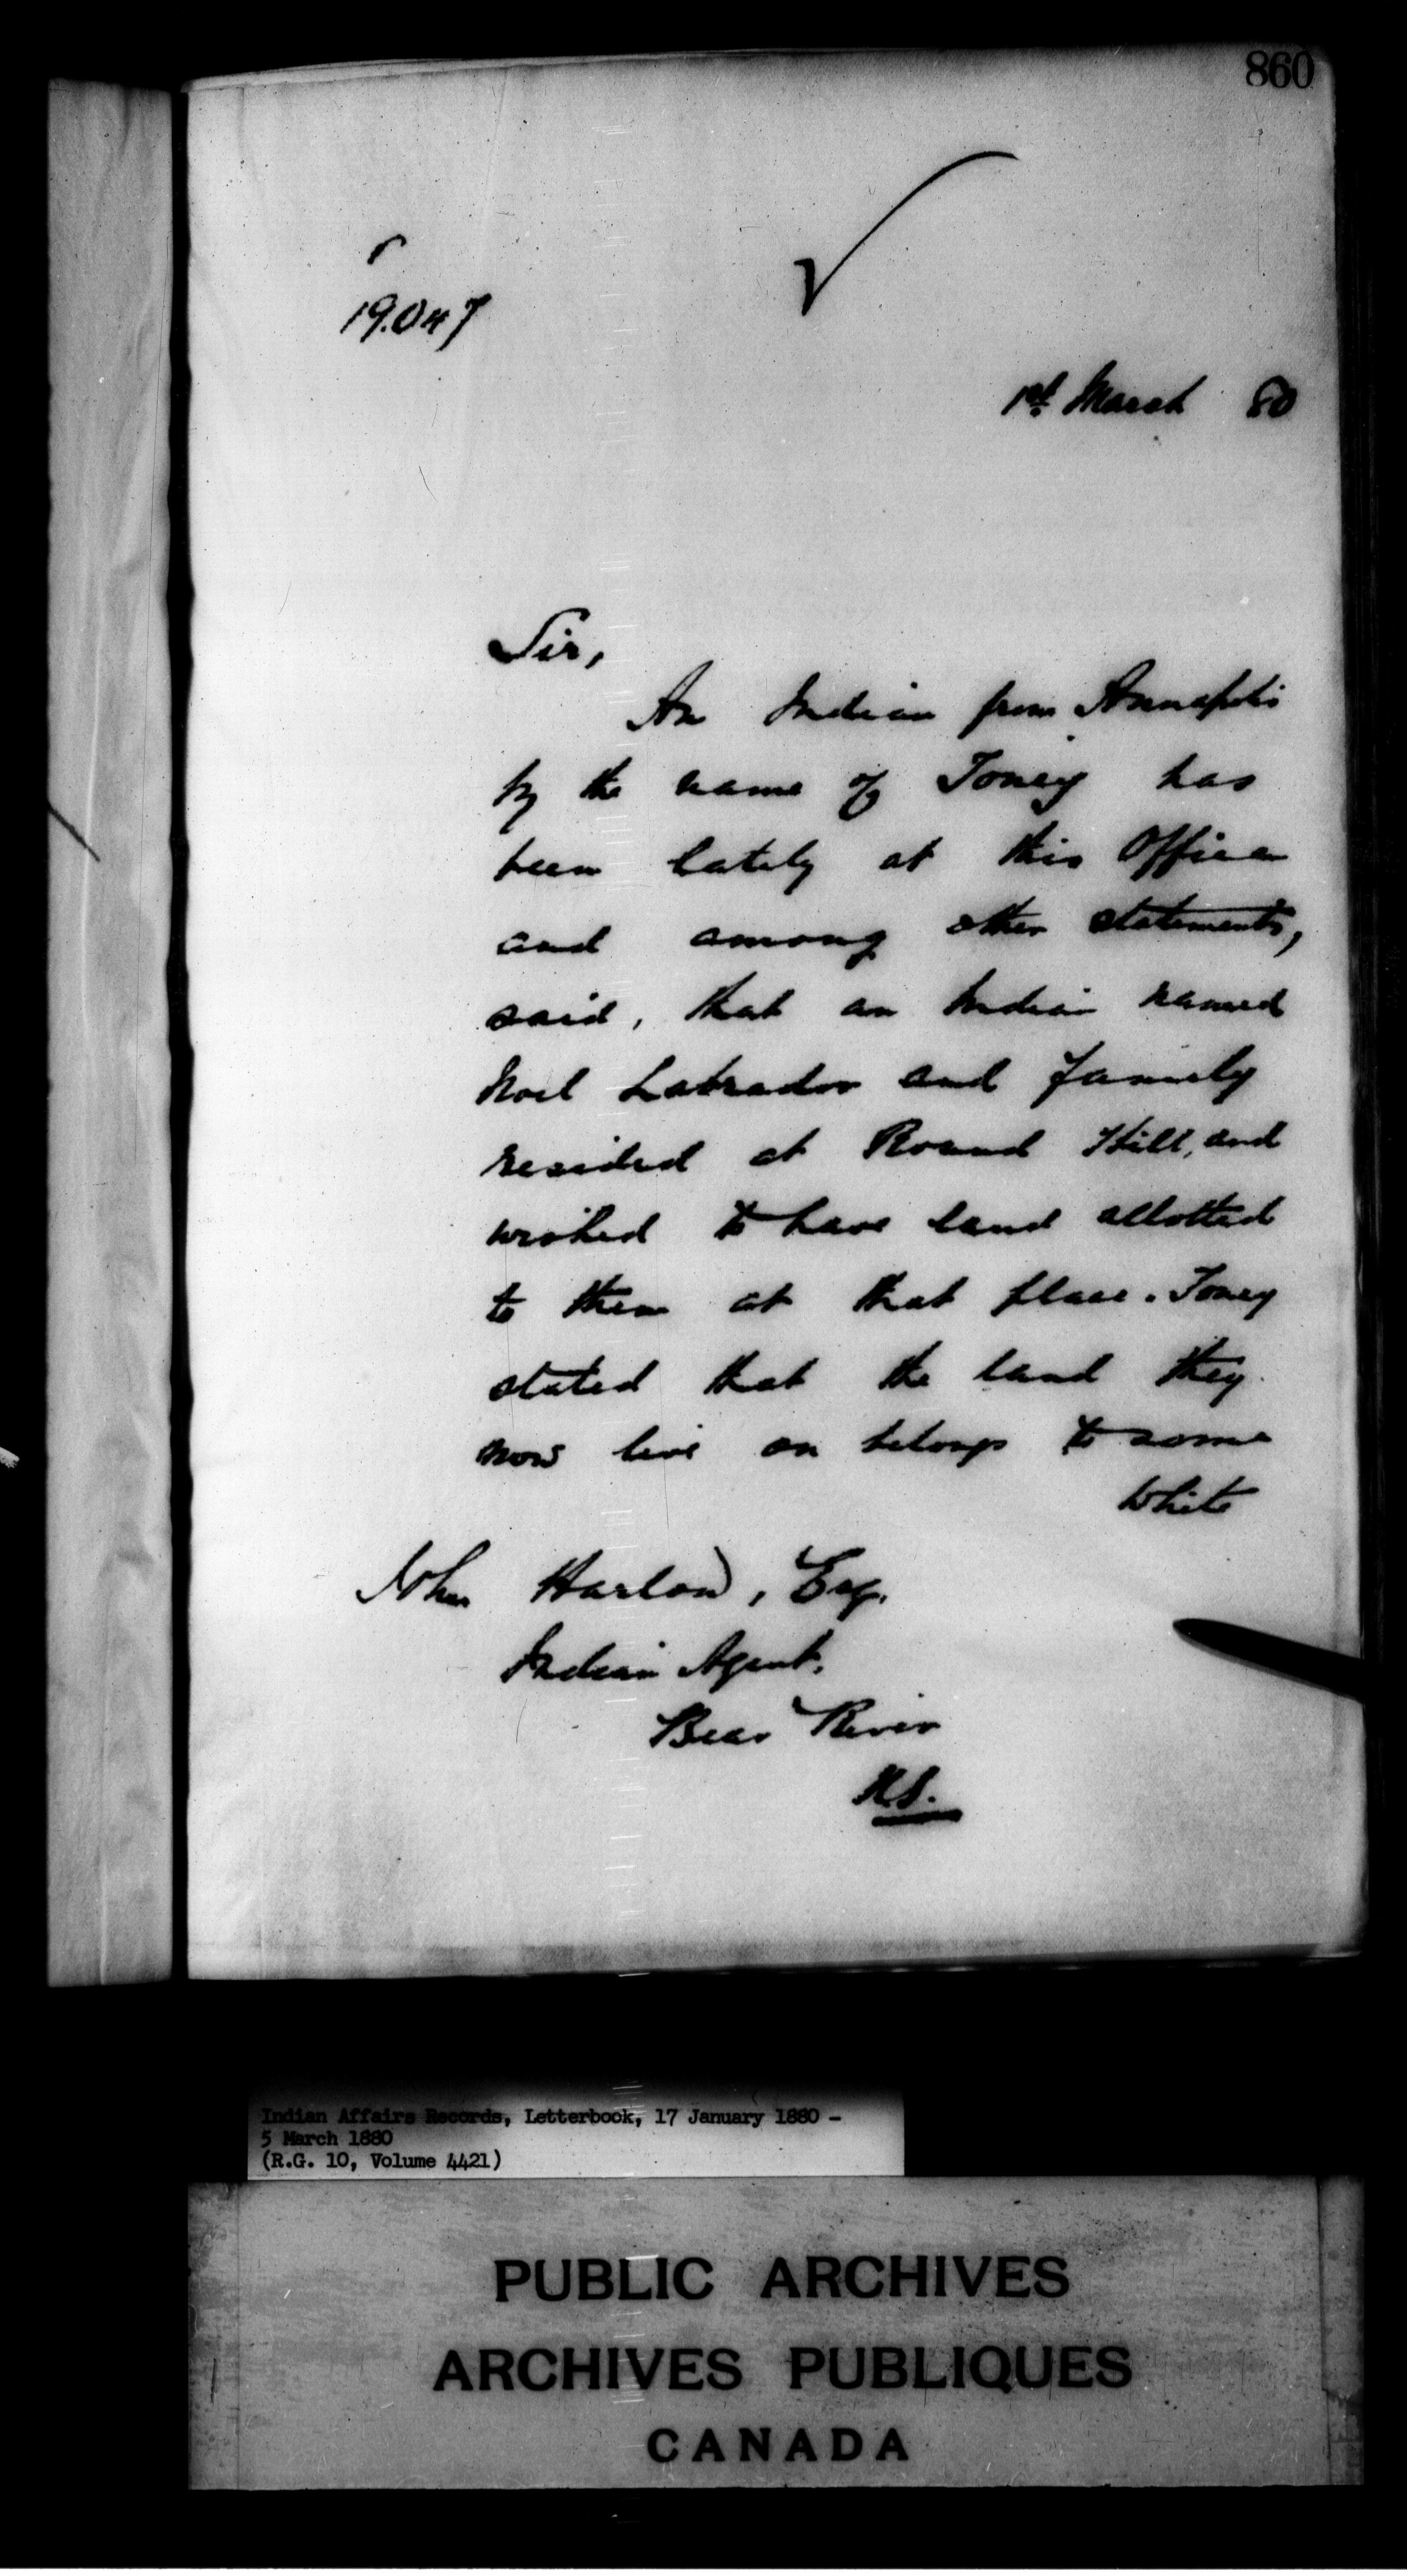 860
19.047
1st March 80
Sir,
An Indian from Annapolis
by the name of Toney has
been lately at this Office
and among other statements,
said, that an Indian named
Noel Labrador and family
resided at Round Hill, and
wished to have land allotted
to them at that place. Toney
stated that the land they
now live on belongs to some
White
John Harlow, Esq.
Indian Agent,
Bear River
N.S.
Indian Affairs Records, Letterbook, 17 January 1880 -
5 March 1880
(R.G. 10, Volume 4421)
PUBLIC ARCHIVES
ARCHIVES PUBLIQUES
CANADA